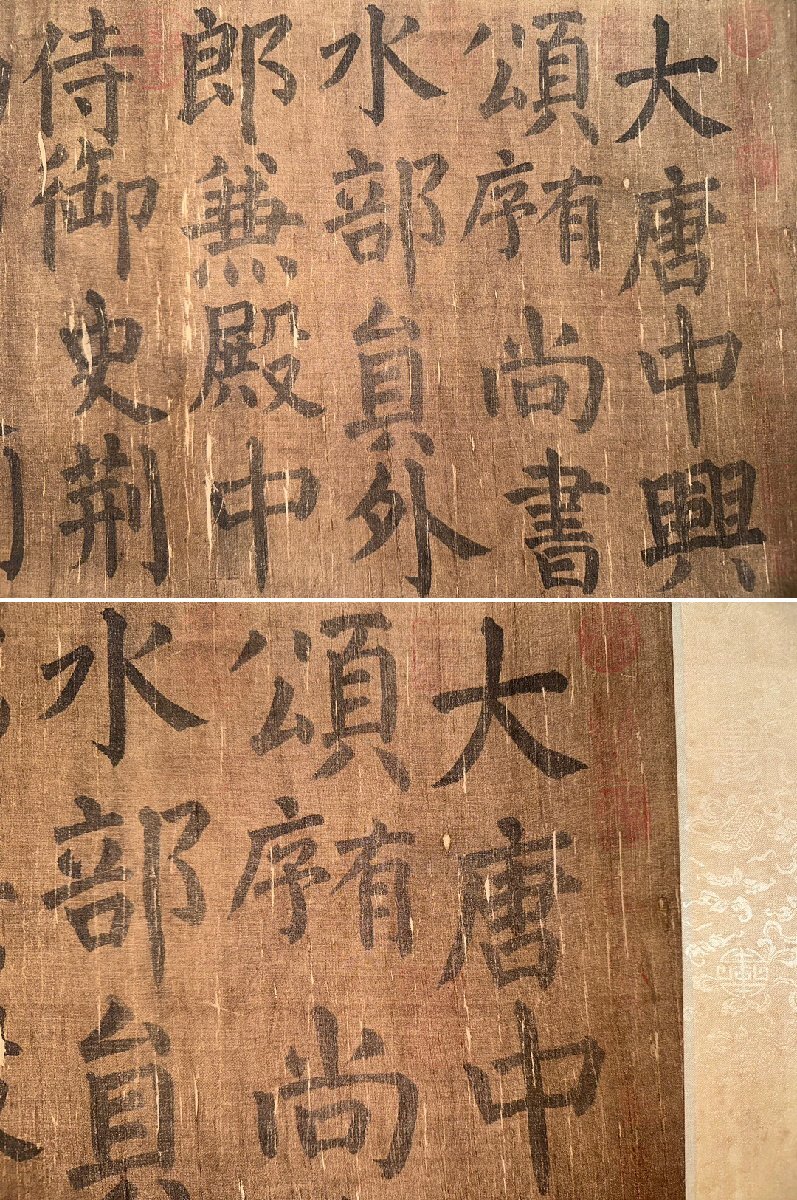 大唐中興
頌有序尚書
水部員外
郎兼殿中
侍御史荊
大唐中
頌有序尚
水部員